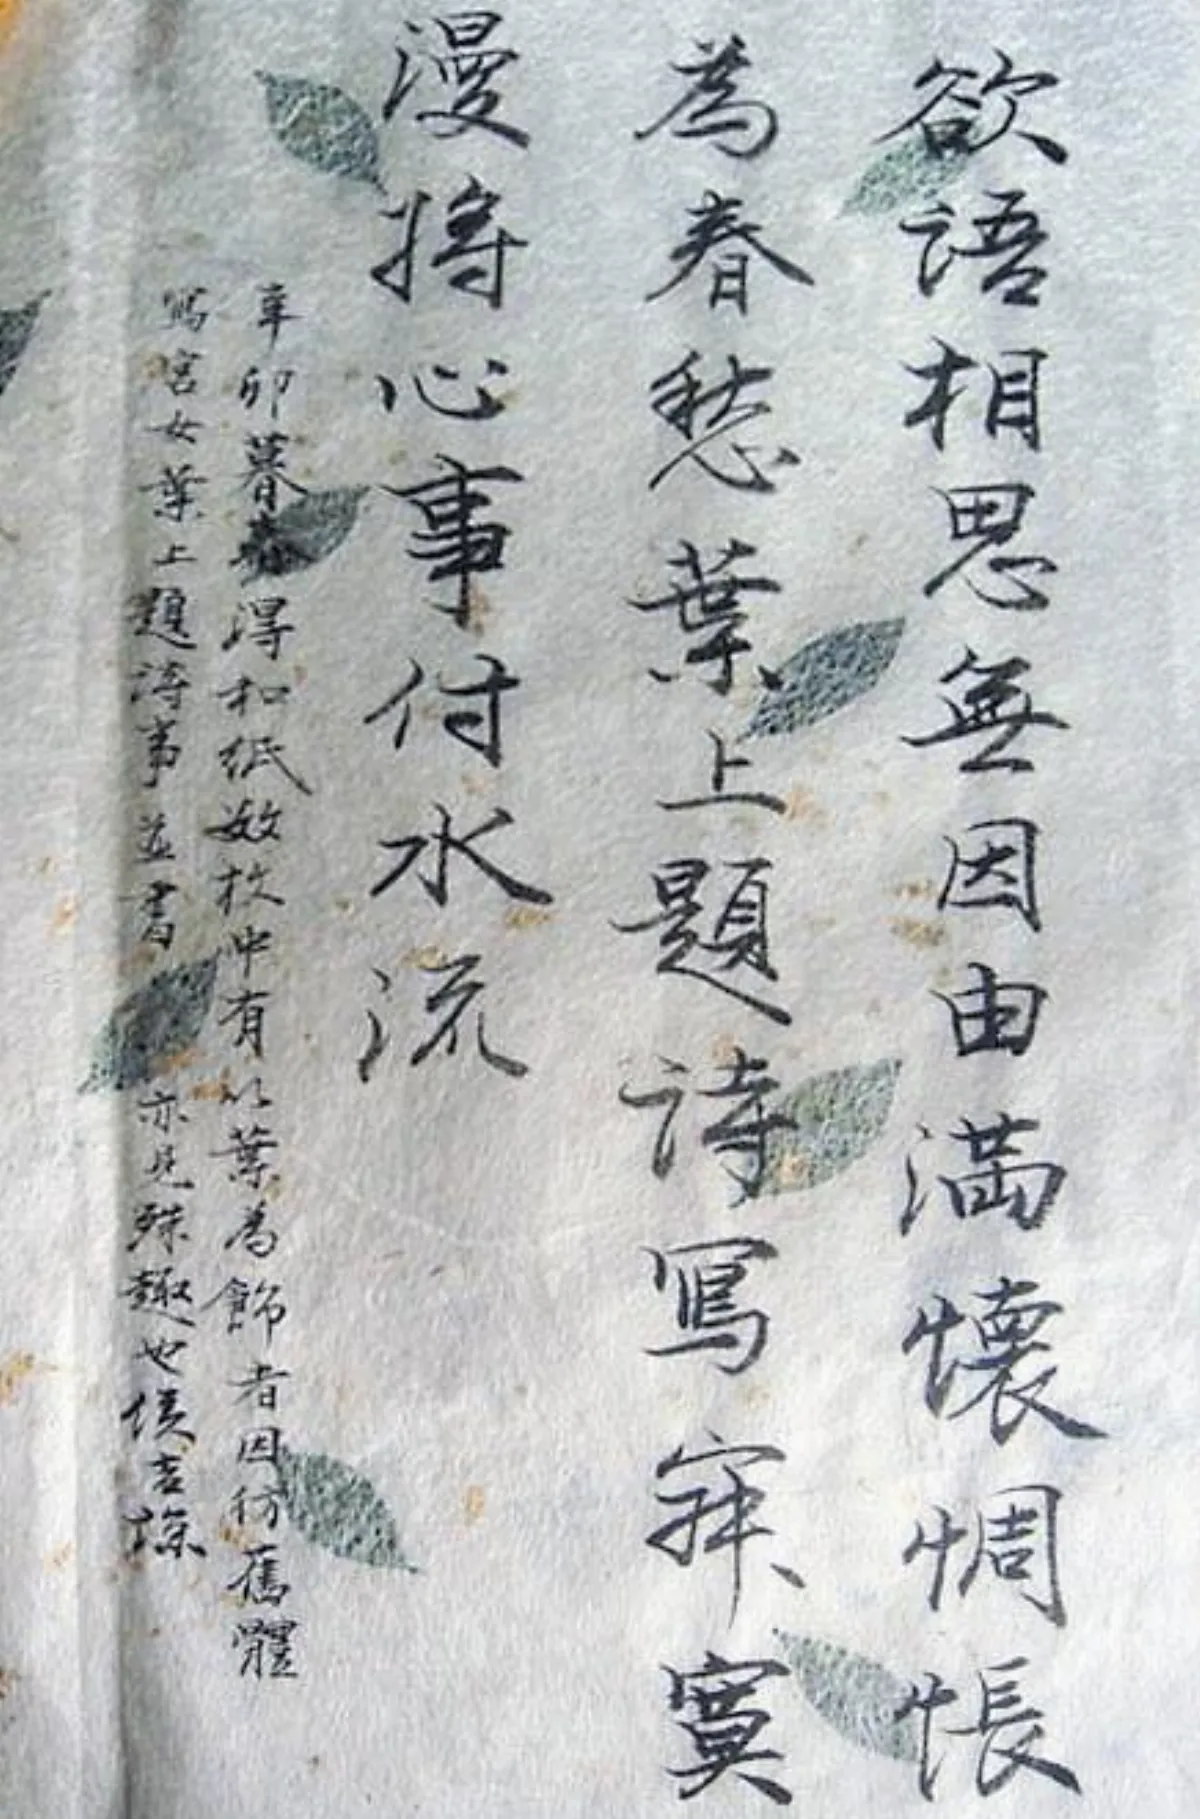 欲語相思無因由滿懷惆悵
為春愁葉上題詩寫寂寞
漫將心事付水流
辛卯暮春得和紙數枚中有以葉為飾者因仿舊體
寫宮女葉上題詩事並書亦見殊趣也侯吉諒